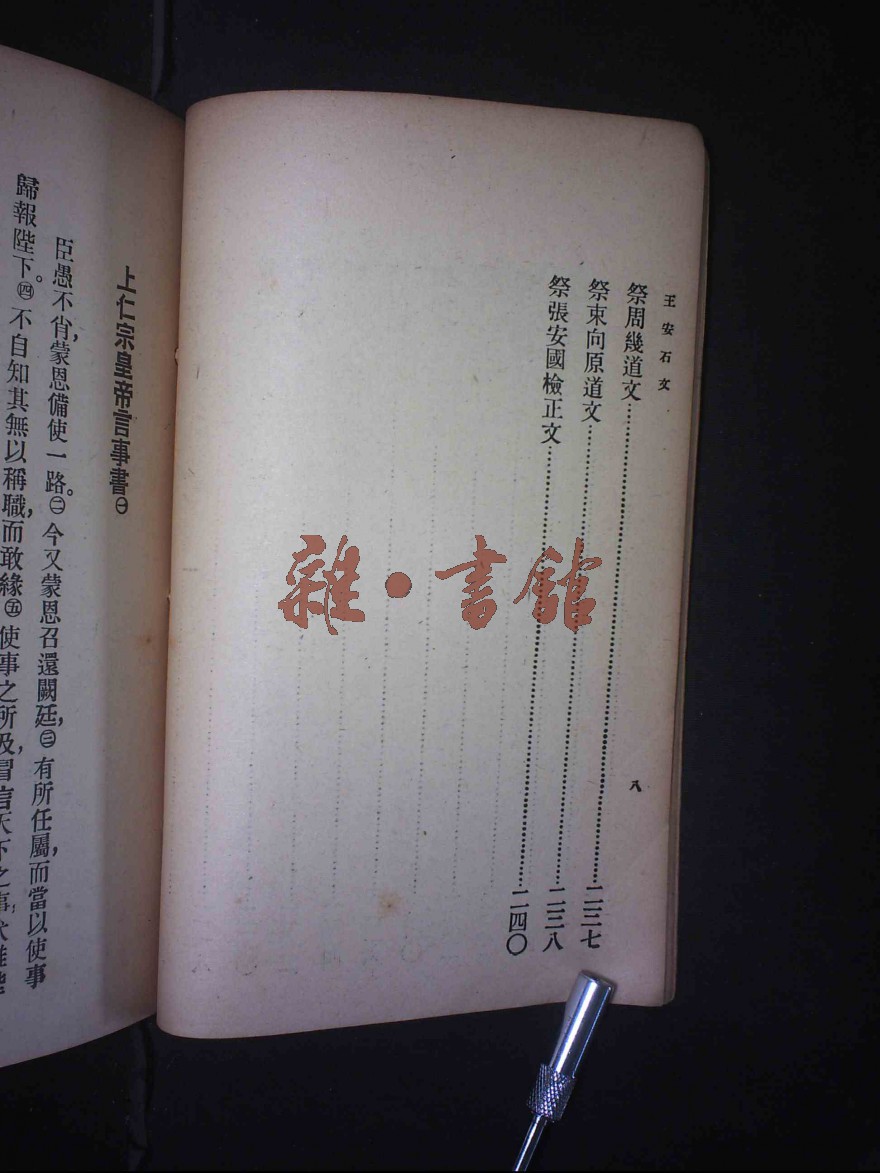 王安石文
祭周幾道文……二三七
祭束向原道文……二三八
祭張安國檢正文……二四〇
八
雜·書館
上仁宗皇帝言事書㊀
臣愚不肖，蒙恩備使一路。㊁今又蒙恩召還闕廷，㊂有所任屬，而當以使事
歸報陛下。㊃不自知其無以稱職，而敢緣㊄使事之所及，冒言天下之事，伏惟陛